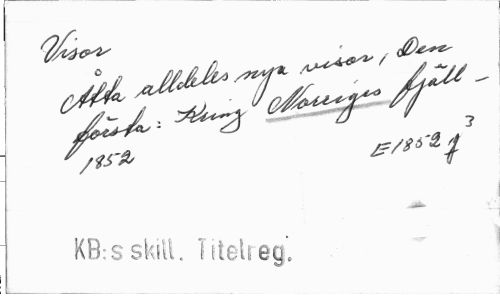 Visor
Åtta alldeles nya visor, Den
första: Kring Norriges fjäll-
1852
E1852 f 3
KB:s skill. Titelreg.